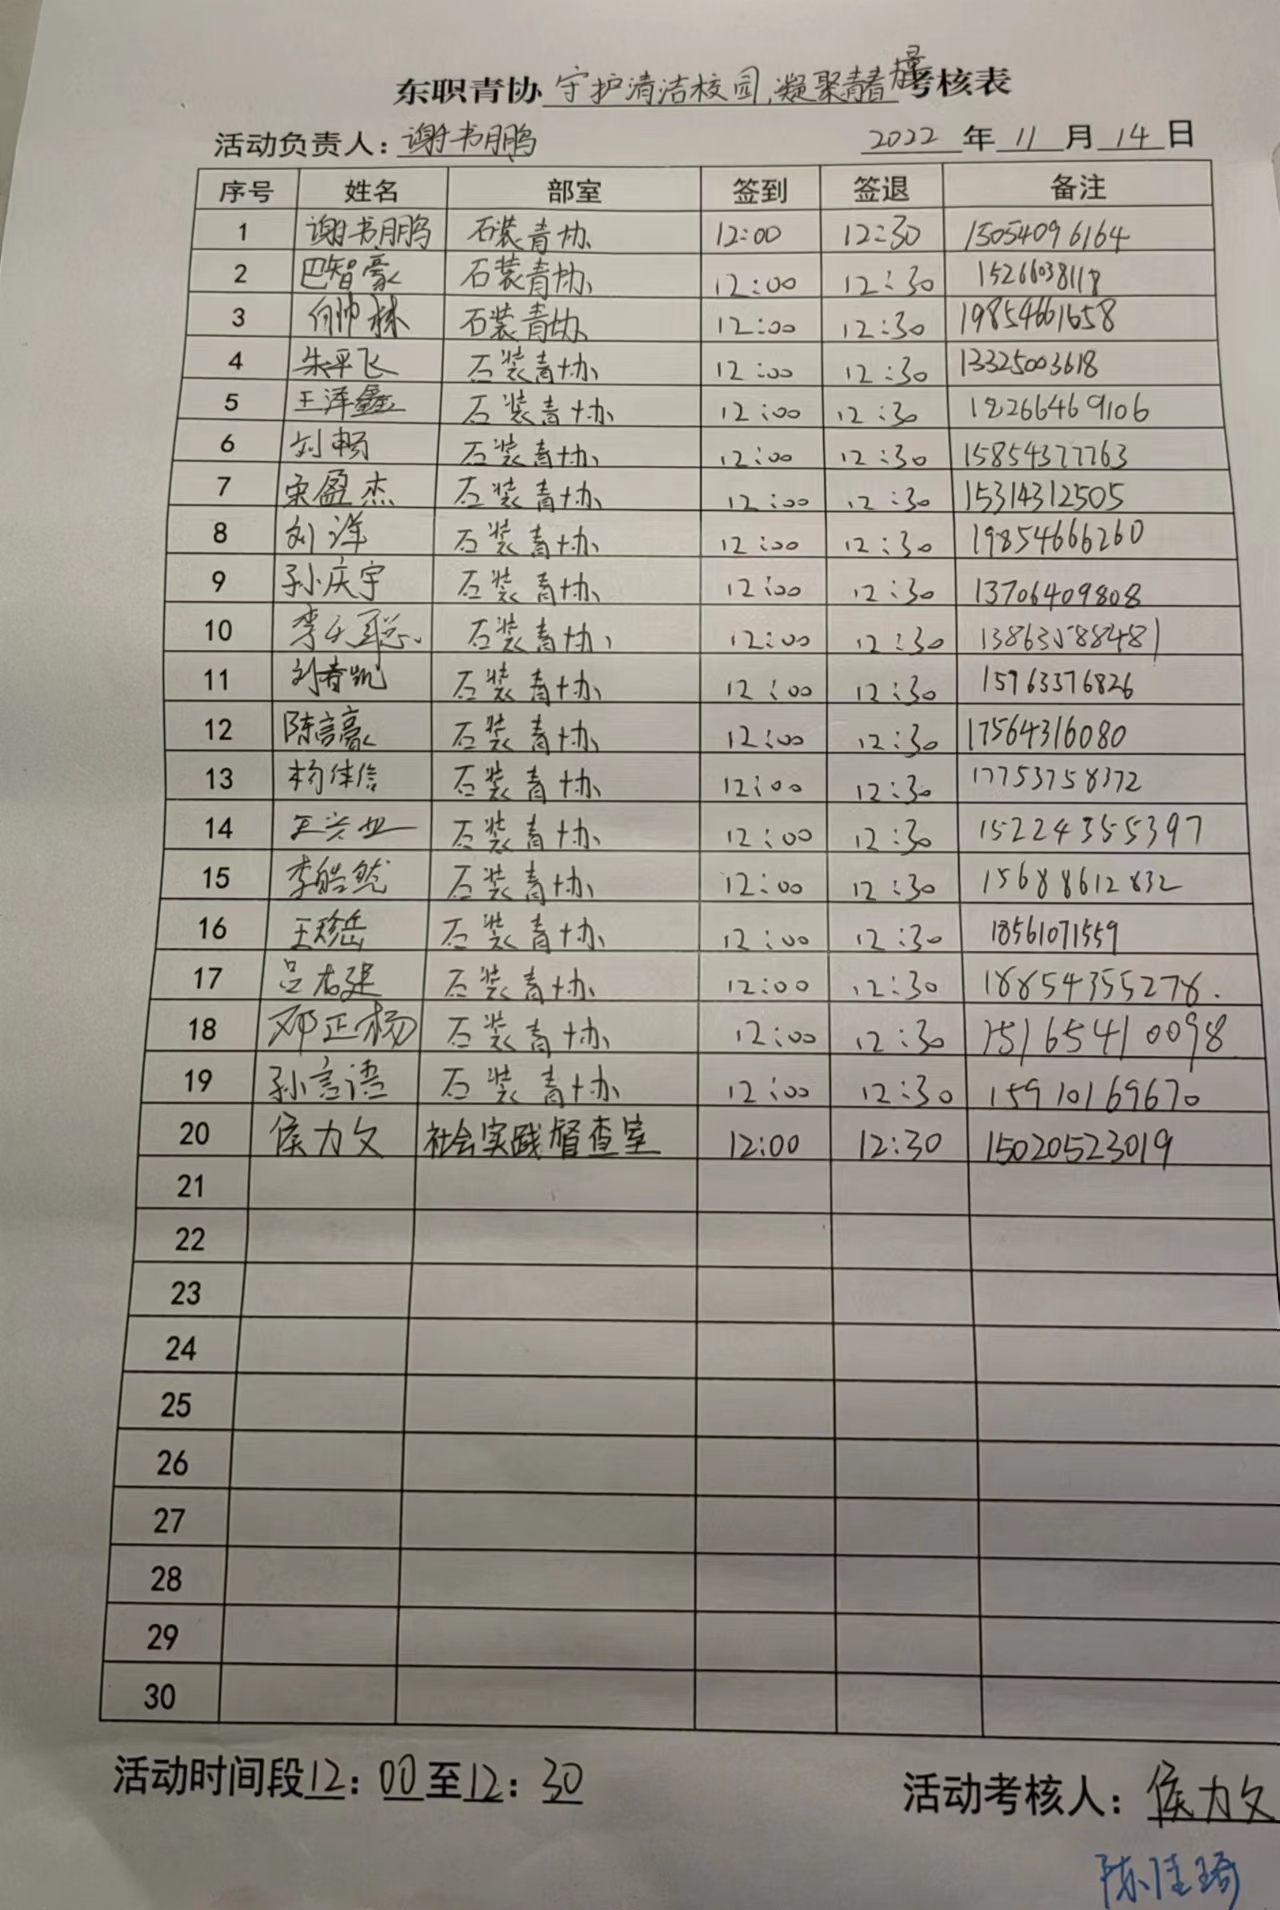 东职青协 守护清洁校园,凝聚青春力量 考核表
活动负责人：谢书鹏 2022 年 11 月 14 日
序号 姓名 部室 签到 签退 备注
1 谢书鹏 石装青协 12:00 12:30 15054096164
2 巴智豪 石装青协 12:00 12:30 15266038118
3 石装青协 12:00 12:30 19854661658
4 朱平飞 石装青协 12:00 12:30 13325003618
5 王泽鑫 石装青协 12:00 12:30 18266469106
6 刘畅 石装青协 12:00 12:30 15854377763
7 宋盈杰 石装青协 12:00 12:30 15314312505
8 刘洋 石装青协 12:00 12:30 19854666260
9 孙庆宇 石装青协 12:00 12:30 13706409808
10 石装青协 12:00 12:30 13863588481
11 石装青协 12:00 12:30 15963376826
12 陈言豪 石装青协 12:00 12:30 17564316080
13 石装青协 12:00 12:30 17753758372
14 王兴业 石装青协 12:00 12:30 15224355397
15 李皓然 石装青协 12:00 12:30 15688612832
16 王珍岳 石装青协 12:00 12:30 18561071559
17 吕右建 石装青协 12:00 12:30 18854355278.
18 邓正杨 石装青协 12:00 12:30 15165410098
19 孙言语 石装青协 12:00 12:30 15910169670
20 侯力文 社会实践督查室 12:00 12:30 15020523019
21
22
23
24
25
26
27
28
29
30
活动时间段12：00至12：30 活动考核人：侯力文
陈佳琦